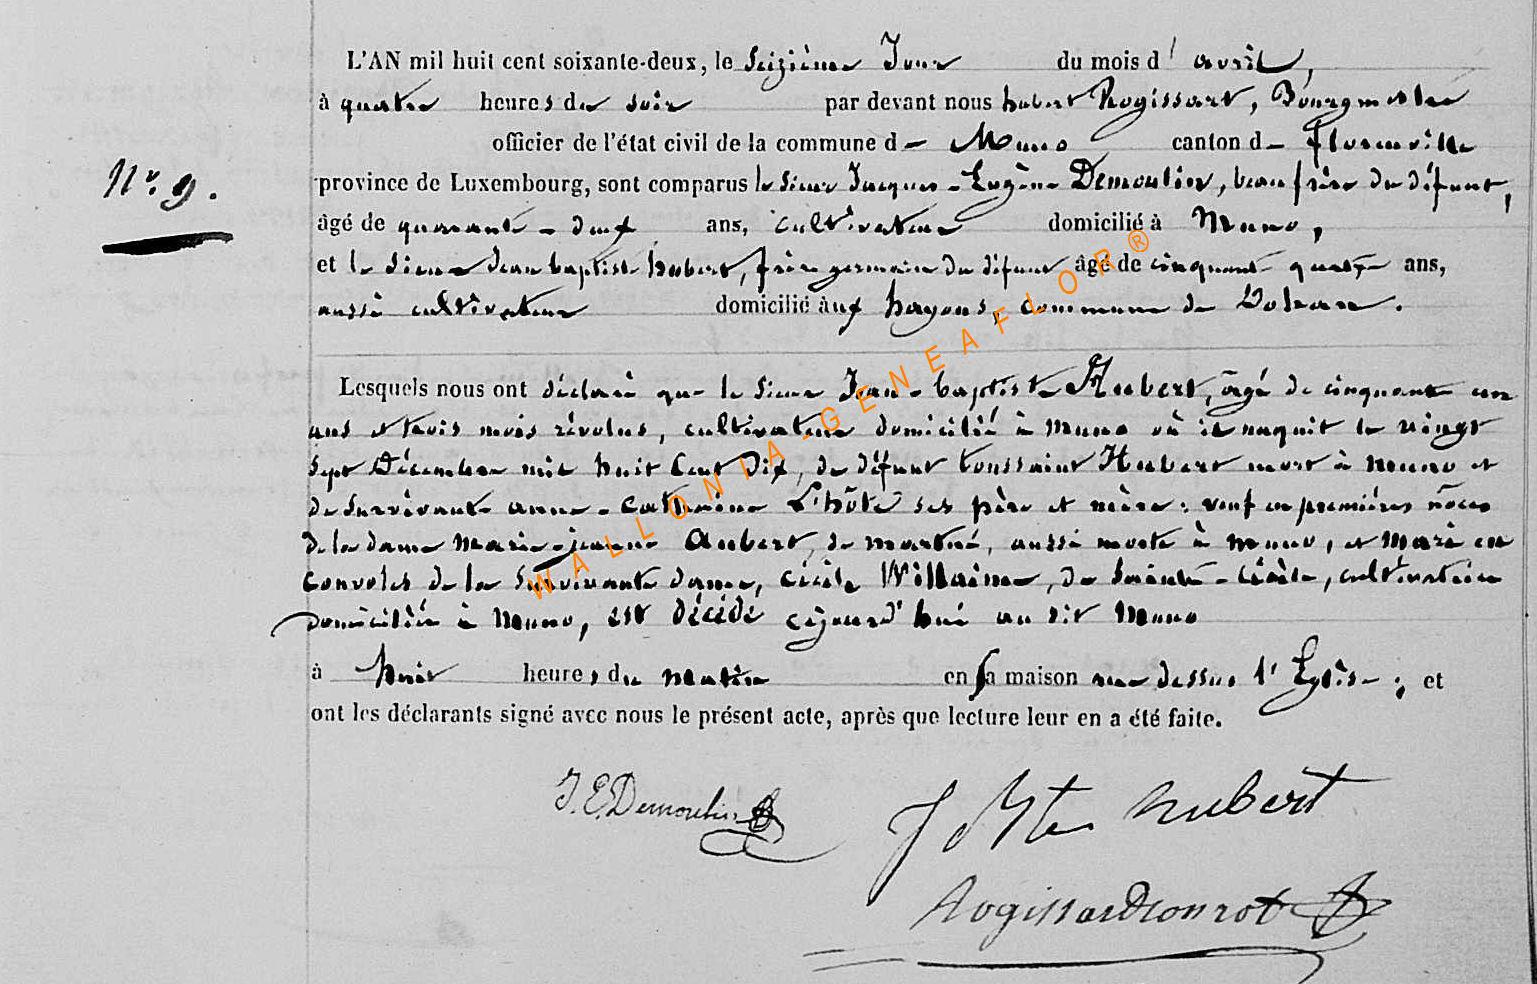 L'AN mil huit cent soixante-deux, le Seizième Jour du mois d' avril,
à quatre heures du soir par devant nous hubert Rogissart, Bourgmestre
officier de l'état civil de la commune de Muno canton de florenville
Nr. 9.
province de Luxembourg, sont comparus le sieur Jacques-Eugène Demoulin, beau frère du défunt,
âgé de quarante-deux ans, cultivateur domicilié à Muno,
et le sieur Jean baptiste hubert, frère germain du défunt âgé de cinquante quatre ans,
aussi cultivateur domicilié aux hayons, commune de Dohan.
Lesquels nous ont déclaré que le sieur Jean-baptiste Hubert, âgé de cinquante un
ans et trois mois révolus, cultivateur domicilié à Muno où il naquit le vingt
sept Décembre mil huit Cent Dix, de défunt toussaint Hubert mort à Muno et
de survivante anne-catherine L'hôte ses père et mère: veuf en premières nôces
de la dame Marie-jeanne Aubert, de martué, aussi morte à Muno, et Mari en
convoles de la survivante dame, Cécile Willaime, de Sainte-Cécile, cultivatrice
domiciliée à Muno, est décédé cejourd'hui au dit Muno
à huit heures du matin en sa maison rue dessus l'Eglise; et
ont les déclarants signé avec nous le présent acte, après que lecture leur en a été faite.
J. E. Demoulin
J Bte hubert
Rogissart
WALLONIA-GENEAFLOR®